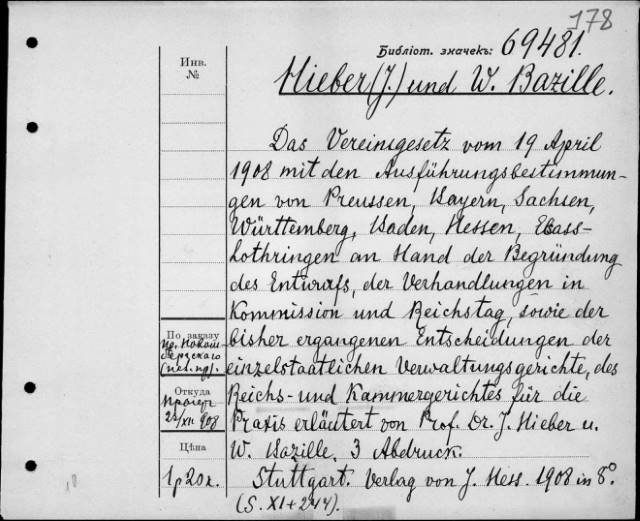 178
Библіот. значекъ: 69481.
Hieber (J.) und W. Bazille.
Инв.
№
Das Vereinsgesetz vom 19 April
1908 mit den Ausführungsbestimmun-
gen von Preussen, Bayern, Sachsen,
Württemberg, Baden, Hessen, Elsass-
Lothringen an Hand der Begründung
des Entwurfs, der Verhandlungen in
Kommission und Reichstag, sowie der
bisher ergangenen Entscheidungen der
einzelstaatlichen Verwaltungsgerichte, des
Reichs- und Kammergerichtes für die
Praxis erläutert von Prof. Dr. J. Hieber u.
W. Bazille. 3 Abdruck.
Stuttgart. Verlag von J. Hess. 1908 in 8°
(S. XI + 244).
По заказу
пр.
Откуда
22/XII 908
Цѣна
1 р 20 к.